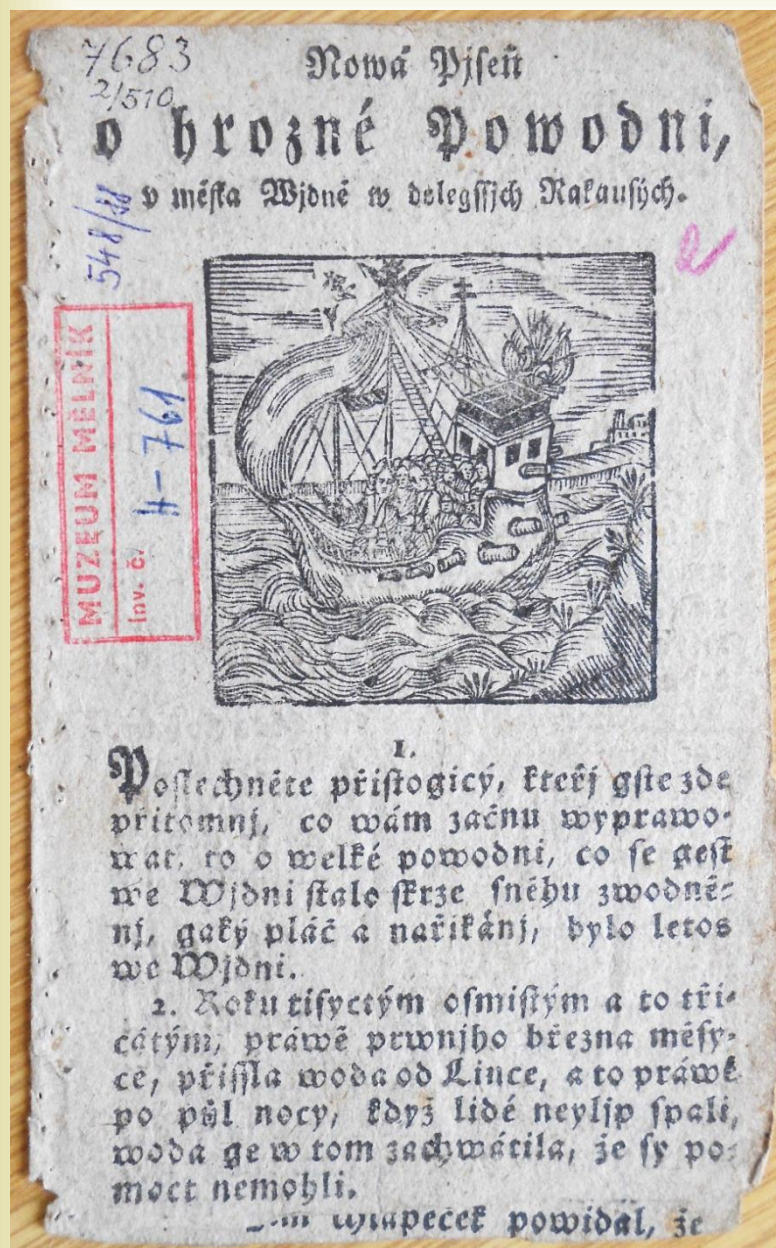 7683
2/510
Nowá Pjseň
o hrozné Powodni,
v města Wjdně w dolegssjch Rakausých.
548/38
MUZEUM MĚLNÍK
Inv. č. H-761
1.
Poslechněte přistogicý, kteřj gste zde
přitomnj, co wám začnu wyprawo-
wat, to o welké powodni, co se gest
we Wjdni stalo skrze sněhu zwodně-
nj, gaký pláč a nařikánj, bylo letos
we Wjdni.
2. Roku tisyctým osmistým a to tři-
cátým, práwě prwnjho března měsy-
ce, přissla woda od Lince, a to práwě
po půl nocy, když lidé neyljp spali,
woda ge w tom zachwátila, že sy po-
moct nemohli.
powidal, že